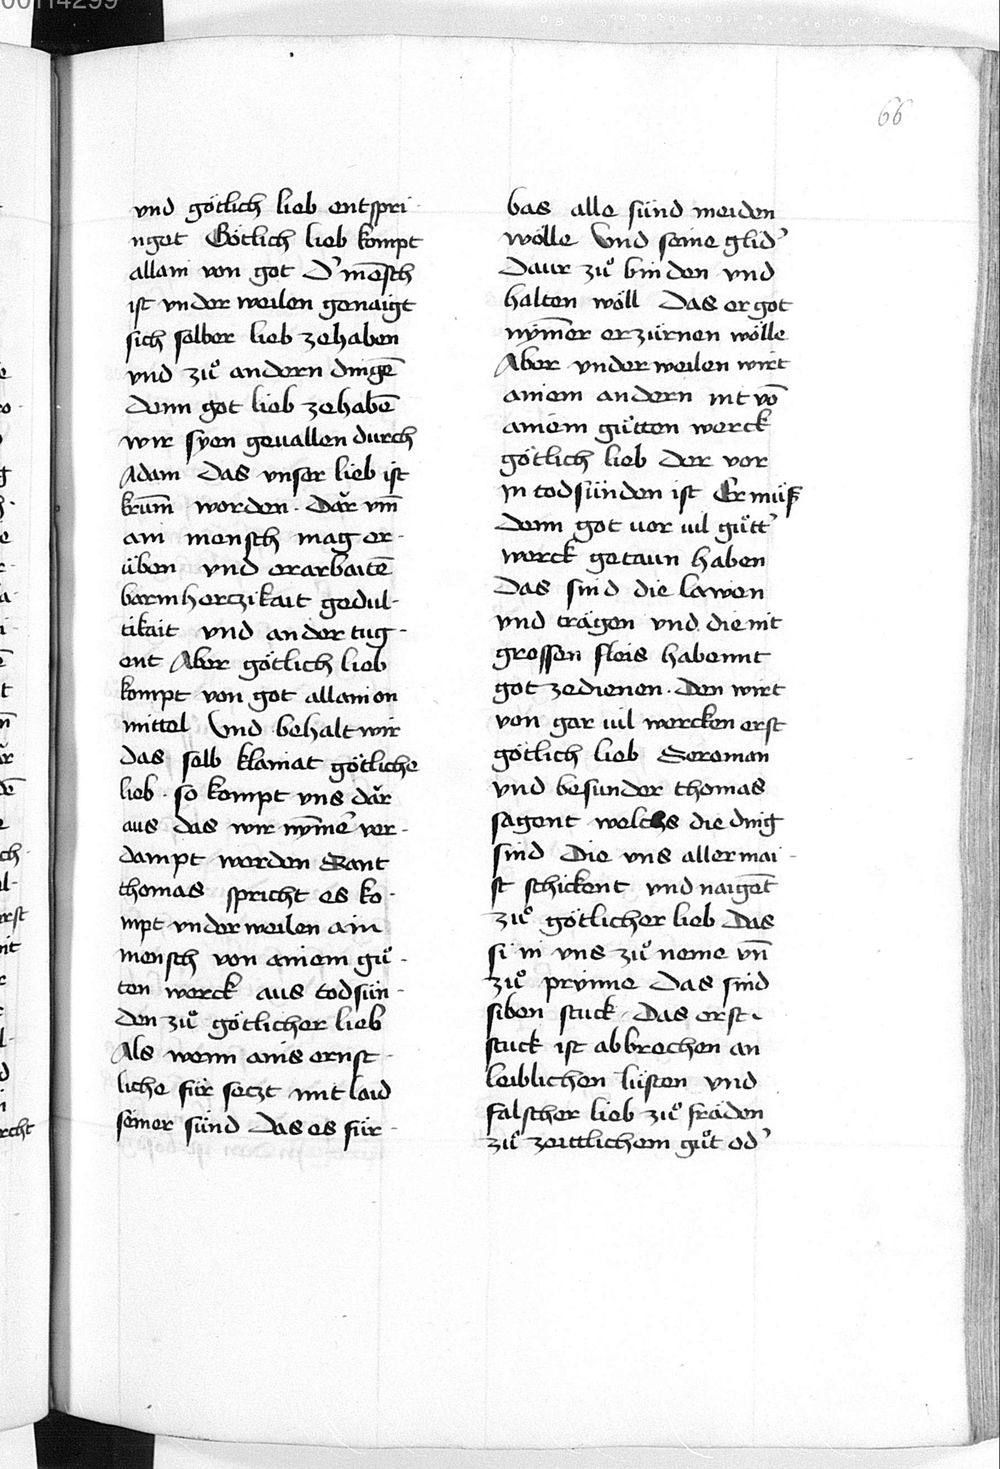 66
vnd götlich lieb entspri-
nget Götlich lieb kompt
allain von got D' mēsch
ist vnder weilen genaigt
sich selber lieb zehaben
vnd zů andern dingē
denn got lieb zehabē
wir syen geuallen durch
Adam das vnser lieb ist
krum̄ worden. Dar vm̄
ain mensch mag er-
üben vnd erarbaitē
barmherczikait gedul-
tikait vnd ander tug-
ent Aber götlich lieb
kompt von got allain on
mittel Vnd behalt wir
das selb klainat götliche
lieb. so kompt vns dar
aus das wir nym̄e' ver-
dampt werden Sant
thomas spricht es ko-
mpt vnder weilen ain
mensch von ainem gů-
ten werck aus todsün-
den zů götlicher lieb
Als wenn ains ernst-
liche für seczt mit laid
seiner sünd das es für-
bas alle sünd meiden
wölle Vnd seine glid'
Daur zů binden vnd
halten wöll Das er got
nym̄er erzürnen wölle
Aber vnder weilen wirt
ainem andern nit vō
ainem gůtten werck
götlich lieb der vor
jn todsünden ist Er můß
denn got uor uil gůtt'
werck getaun haben
Das sind die lawen
vnd trägen vnd die nit
grossen fleis habennt
got zedienen. Den wirt
von gar uil wercken erst
götlich lieb Sereman
vnd besunder thomas
sagent welchs die ding
sind Die vns aller mai-
st schickent vnd naigēt
zů götlicher lieb Das
si in vns zů neme vn̄
zů prynne Das sind
siben stuck. Das erst
stuck ist abbrechen an
leiblichen lüsten vnd
falscher lieb zů fräden
zů zeittlichem gůt od'